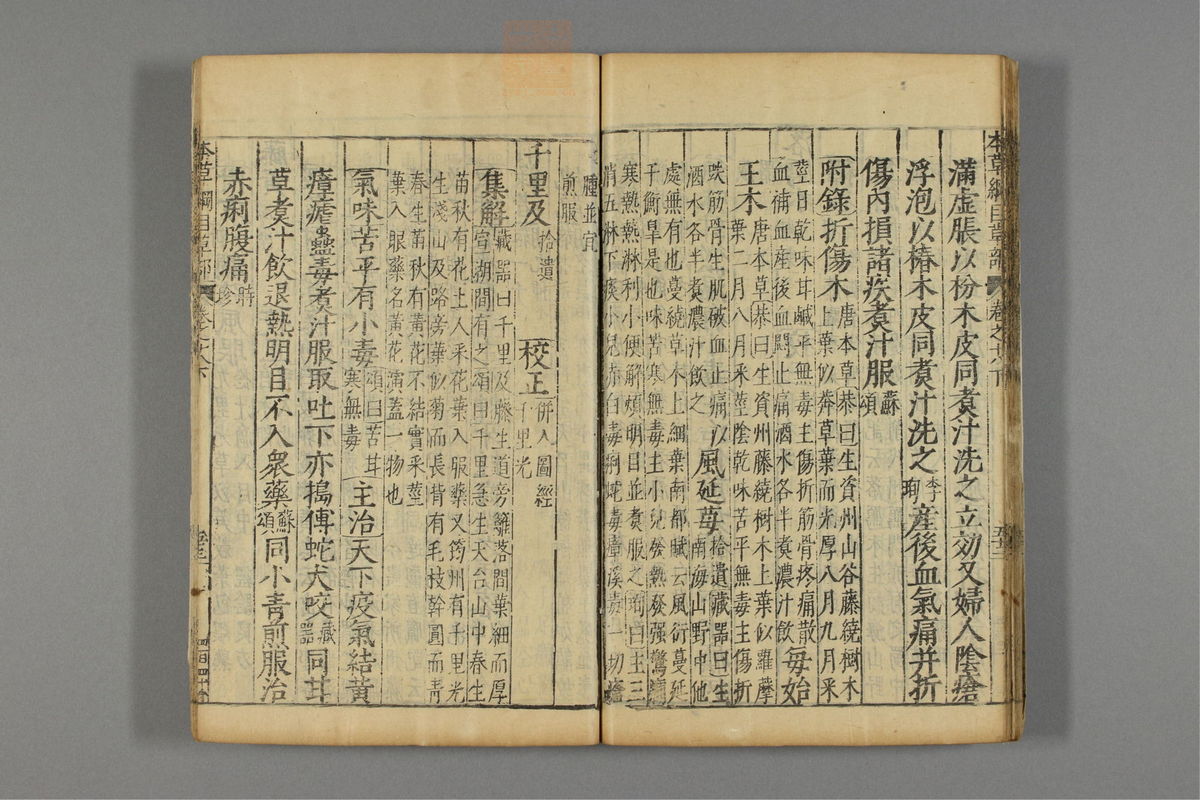 滿虛脹以枌木皮同煮汁洗之立効又婦人陰瘡
浮泡以椿木皮同煮汁洗之李珣產後血氣痛并折
傷內損諸疾煮汁服蘇頌
附錄折傷木唐本草恭曰生資州山谷藤繞樹木
上葉似莽草葉而光厚八月九月采
莖日乾味甘鹹平無毒主傷折筋骨疼痛散
血補血產後血悶止痛酒水各半煮濃汁飲每始
王木唐本草恭曰生資州藤繞樹木上葉似蘿摩
葉二月八月采莖陰乾味苦平無毒主傷折
跌筋骨生肌破血止痛以
酒水各半煮濃汁飲之風延莓拾遺藏器曰生
南海山野中他
處無有也蔓繞草木上細葉南都賦云風衍蔓延
于衡皐是也味苦寒無毒主小兒發熱發强驚
寒熱熱淋利小便解煩明目並煮服之珣曰主三
消五淋下痰小兒赤白毒痢蛇毒瘴溪毒一切瘡
腫並宜
煎服
千里及拾遺
校正併入圖經
千里光
集解藏器曰千里及藤生道旁籬落間葉細而厚
宣湖間有之頌曰千里急生天台山中春生
苗秋有花土人采花葉入服藥又筠州有千里光
生淺山及路旁葉似菊而長背有毛枝幹圓而靑
春生苗秋有黃花不結實采莖
葉入眼藥名黃花演蓋一物也
氣味苦平有小毒頌曰苦甘
寒無毒主治天下疫氣結黃
瘴瘧蠱毒煮汁服取吐下亦搗傅蛇犬咬藏器同甘
草煮汁飲退熱明目不入衆藥蘇頌同小青煎服治
赤痢腹痛時珍
本草綱目草部
卷之十八下